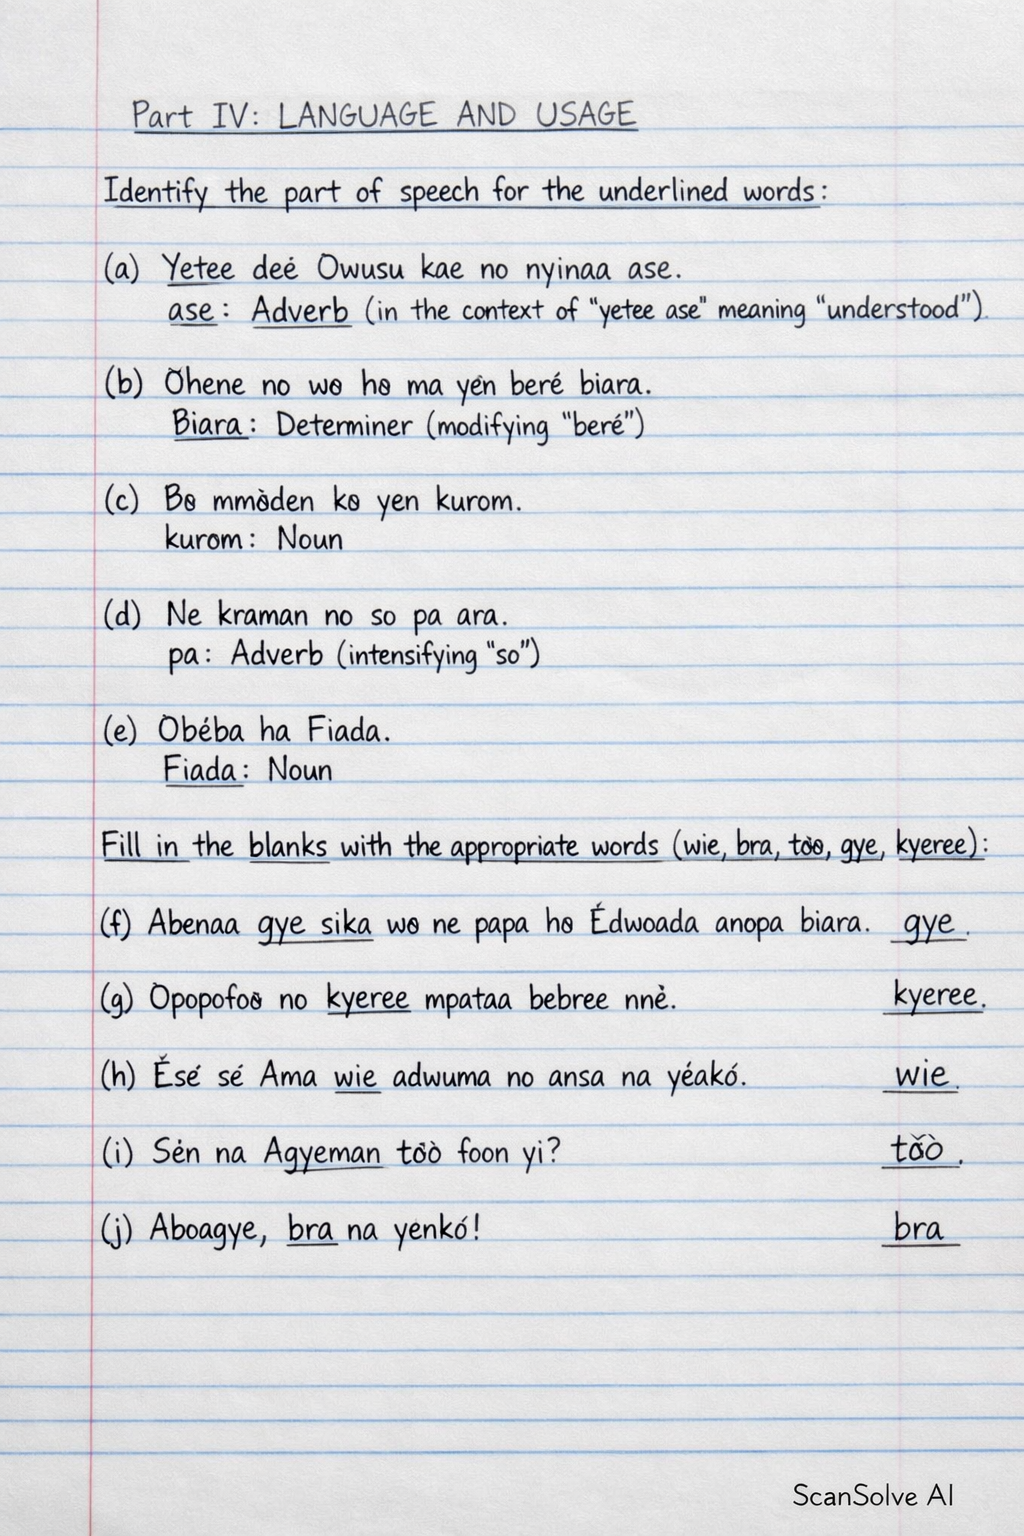 Part IV: LANGUAGE AND USAGE
Identify the part of speech for the underlined words:
(a) Yetee deé Owusu kae no nyinaa ase.
ase: Adverb (in the context of "yetee ase" meaning "understood").
(b) Öhene no wɵ hɵ ma yén beré biara.
Biara: Determiner (modifying "beré")
(c) Bɵ mmɵ̀den kɵ yen kurom.
kurom: Noun
(d) Ne kraman no so pa ara.
pa: Adverb (intensifying "so")
(e) Òbéba ha Fiada.
Fiada: Noun
Fill in the blanks with the appropriate words (wie, bra, tòɵ, gye, kyeree):
(f) Abenaa gye sika wɵ ne papa hɵ Édwoada anopa biara. gye.
(g) Òpopofoɵ̀ no kyeree mpataa bebree nnè. kyeree.
(h) Ěsé sé Ama wie adwuma no ansa na yéakó. wie.
(i) Sén na Agyeman tŏò foon yi? tŏò.
(j) Aboagye, bra na yénkó! bra
ScanSolve AI